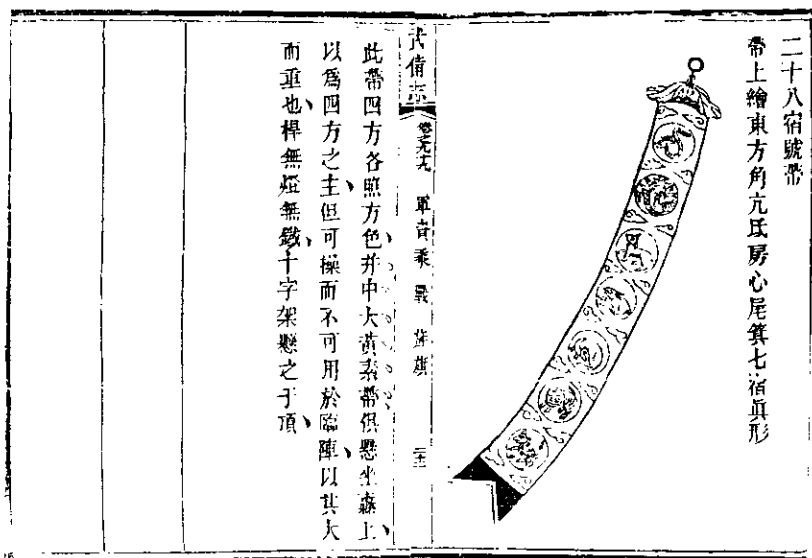 二十八宿號帶
帶上繪東方角亢氐房心尾箕七宿眞形
武備志 卷之九十九 軍資乘 戰 旌旗
此帶四方各照方色并中大黃素帶俱懸坐纛上
以爲四方之主但可操而不可用於臨陣以其大
而重也桿無燈無鐵十字架懸之于頂